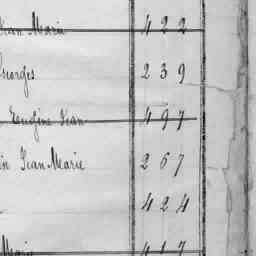 Jean Marie 422
Georges 239
Eugène Jean 497
in Jean Marie 267
424
Marie 417